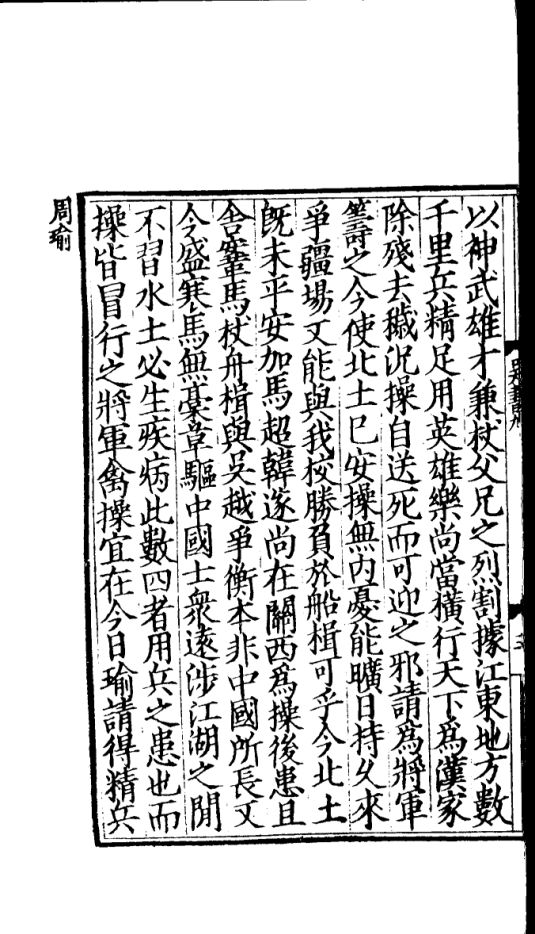 以神武雄才兼杖父兄之烈割據江東地方數
千里兵精足用英雄樂尚當橫行天下爲漢家
除殘去穢況操自送死而可迎之邪請爲將軍
籌之今使北土已安操無內憂能曠日持久來
爭疆場又能與我校勝負於船楫可乎今北土
旣未平安加馬超韓遂尚在關西爲操後患且
舍鞌馬杖舟楫與吳越爭衡本非中國所長又
今盛寒馬無藁草驅中國士衆遠涉江湖之閒
不習水土必生疾病此數四者用兵之患也而
操皆冒行之將軍禽操宜在今日瑜請得精兵
周瑜